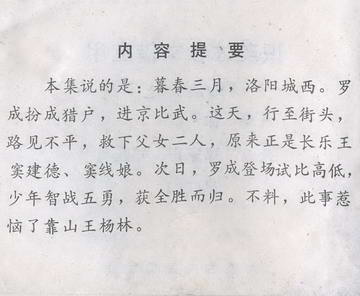 内容提要
本集说的是：暮春三月，洛阳城西。罗
成扮成猎户，进京比武。这天，行至街头，
路见不平，救下父女二人，原来正是长乐王
窦建德、窦线娘。次日，罗成登场试比高低，
少年智战五勇，获全胜而归。不料，此事惹
恼了靠山王杨林。